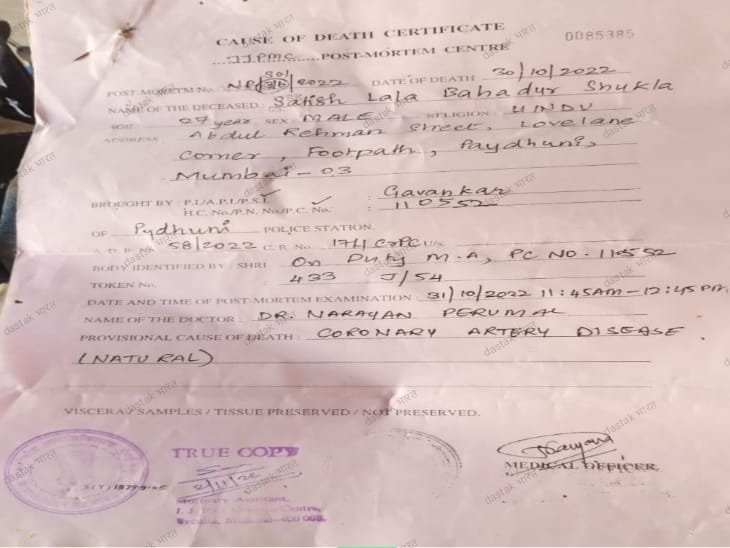 CAUSE OF DEATH CERTIFICATE
0085385
...JJPMC......POST-MORTEM CENTRE
POST-MORTM No. DATE OF DEATH 30/10/2022
NAME OF THE DECEASED : Satish Lala Bahadur Shukla
AGE 27 year SEX MALE RELIGION : HINDU
ADDRESS Abdul Rehman Street, Lovelane
Corner, Footpath, Paydhuni,
Mumbai - 03
BROUGHT BY : P.I./A.P.I./P.S.I. : Gavankar
H.C. No./P.N. No./P.C. No. : 110552
OF Pydhuni POLICE STATION.
A.D.R. 58/2022 C.R. No. 174 CrPC U/s
BODY IDENTIFIED BY : SHRI On Duty M.A, PC NO. 110552
TOKEN No. : 433 J/54
DATE AND TIME OF POST-MORTEM EXAMINATION : 31/10/2022 11:45AM-12:45PM
NAME OF THE DOCTOR : DR. NARAYAN PERUMAL
PROVISIONAL CAUSE OF DEATH : CORONARY ARTERY DISEASE
(NATURAL)
VISCERA / SAMPLES / TISSUE PRESERVED / NOT PRESERVED.
TRUE COPY
2/11/22
Mortuary Assistant,
MEDICAL OFFICER
dastak भारत